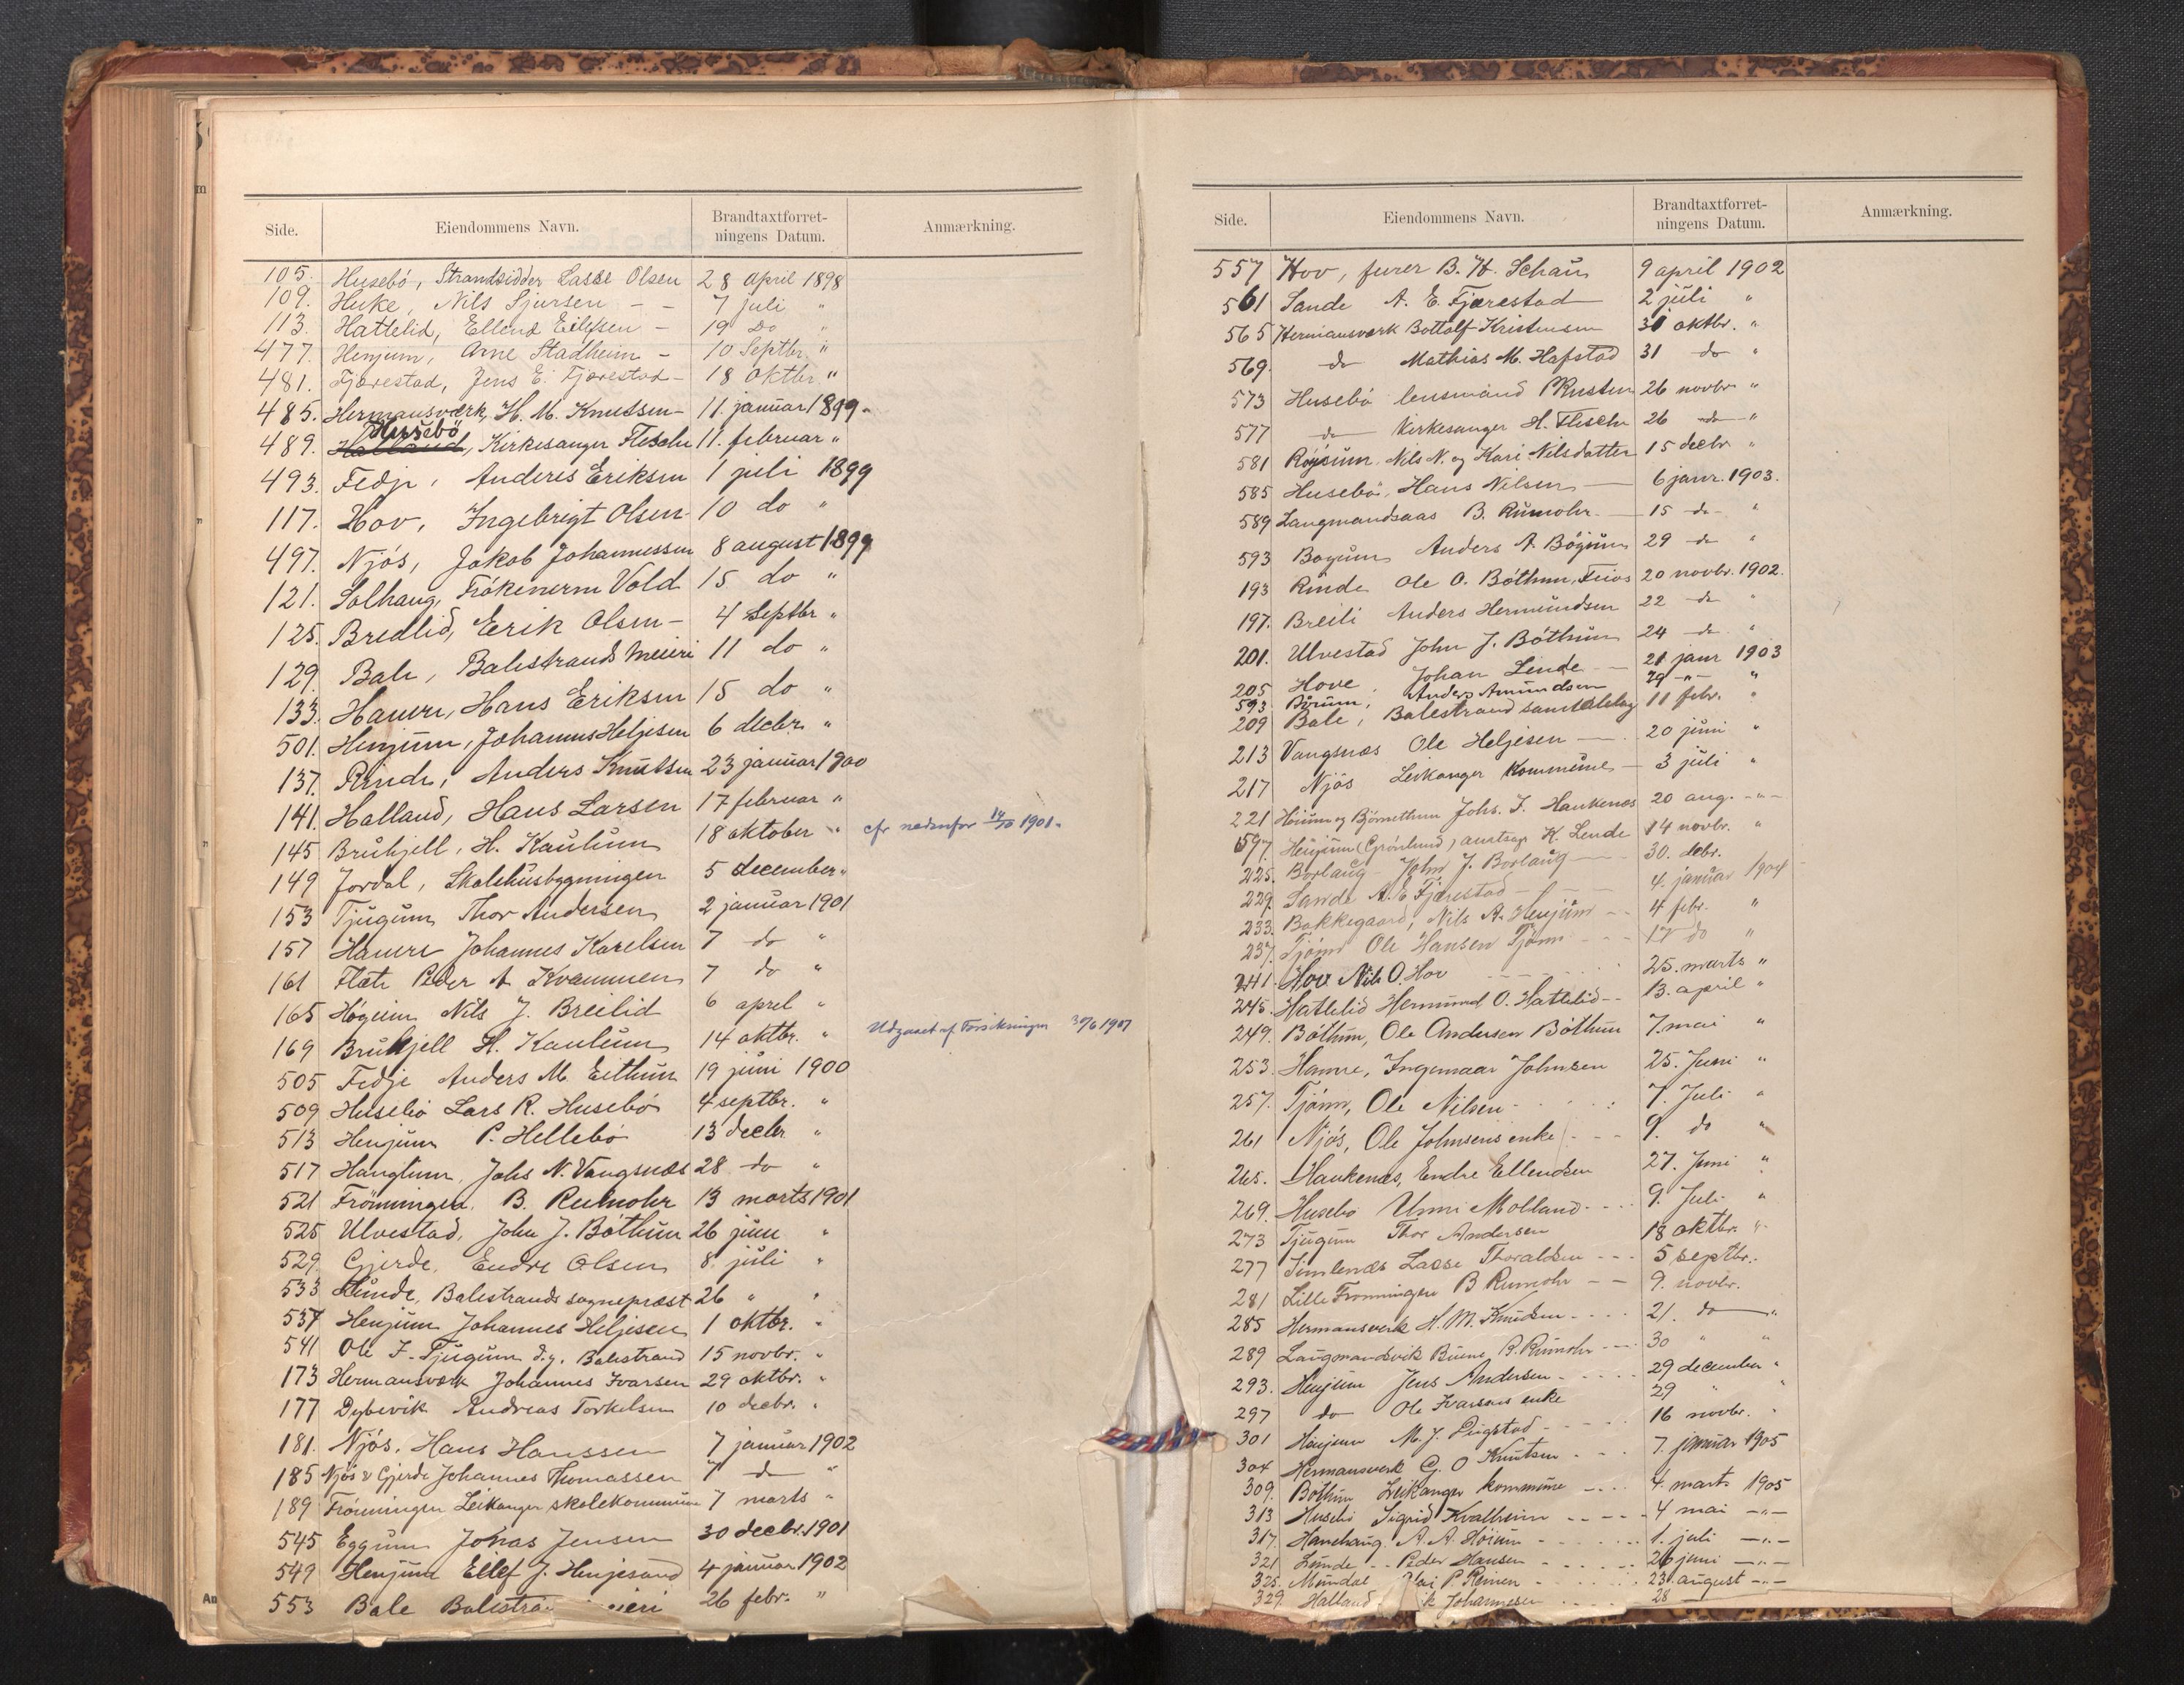 Side. Eiendommens Navn. Brandtaxtforret-ningens Datum. Anmærkning.
105. Husebö, Strandsidder Lasse Olsen 28 April 1898
109. Huke, Nils Sjursen - - 7 juli "
113. Hattelid, Ellend Eilefsen - 19 do "
477. Henjum, Arne Stadheim - 10 Septbr "
481. Fjærestad, Jens E. Fjærestad - 18 Oktbr "
485. Hermansværk, H. M. Knutsen - 11. januar 1899.
Husebö
489. Halland, Kirkesanger Flesche 11. februar "
493. Fedje, Anders Eriksen 1 juli 1899
117. Hov, Ingebrigt Olsen 10 do "
497. Njös, Jakob Johannessen 8 august 1899
121. Solhaug, Frökenerne Vold 15 do "
125. Bredlid, Erik Olsen - 4 Septbr "
129. Bale, Balestrands Meieri 11 do "
133. Hamre, Hans Eriksen 15 do "
501. Henjum, Johannes Heljesen 6 decbr. "
137. Rinde, Anders Knutsen 23 januar 1900
141. Halland, Hans Larsen 17 februar "
145 Bruhjell, H. Kaulum 18 oktober " cfr nedenfor 14/10 1901.
149 Jordal, Skolehusbygningen 5 december "
153 Tjugum Thor Andersen 2 januar 1901
157 Hamre Johannes Karelsen 7 do "
161 Flate Peder A Kvammen 7 do "
165 Högum Nils J. Breilid 6 april "
169 Bruhjell H. Kaulum 14 oktbr. " Udgaaet af Forsikringen 30/6 1907
505 Fedje Anders M. Eithun 19 juni 1900
509 Husebö Lars R. Husebö 4 septbr. "
513 Henjum P. Hellebö 13 decbr "
517 Hanglum, Johs N. Vangsnæs 28 do "
521 Frönningen. B. Rumohr 13 marts 1901
525 Ulvestad, John J. Böthun 26 juni "
529 Gjerde, Endre Olsen 8. juli "
533 Lunde, Balestrands sogneprest 26 " "
537 Henjum Johannes Heljesen 1 oktbr. "
541 Ole J. Tjugum d.y. Balestrand 15 novbr. "
173 Hermansværk Johannes Ivarsen 29 oktbr. "
177 Dybevik Andreas Torkelsen 10 decbr. "
181. Njös, Hans Hanssen 7 januar 1902
185 Njös & Gjerde Johannes Thomassen 7 do "
189 Frönningen Leikanger skolekommune 7 marts "
545 Eggum Johas Jensen 30 decbr. 1901
549 Henjum Eilef J. Henjesand 4 januar 1902
553 Bale Balestra ieri 26 febr. "
Side. Eiendommens Navn. Brandtaxtforret-ningens Datum. Anmærkning.
557 Hov, furer B. H. Schau 9 april 1902
561 Sande A. E. Fjærestad 2 juli "
565 Hermansværk Bottolf Kristensen 31 oktbr. "
569. do Mathias M. Hafstad 31 do "
573 Husebö lensmand Rusten 26 novbr "
577 do Kirkesanger H. Flesche 26 do "
581 Röysum. Nils N. og Kari Nilsdatter 15 decbr "
585 Husebö, Hans Nilsen 6 janr. 1903.
589 Langmandsaas B. Rumohr 15 do "
593 Bøyum Anders A. Böyum 29 do "
193 Rinde Ole O. Böthun, Feios 20 novbr. 1902.
197. Breili Anders Hermundsen 22 do "
201. Ulvestad John J. Böthun 24 do "
205 Hove, Johan Lende 21 janr 1903
593 Börum, Anders Amundsen 29 -"- "
209 Bale, Balestrand samtalelag 11 febr. "
213 Vangsnæs Ole Heljesen 20 juni "
217 Njös Leikanger Kommune 3 juli "
221 Höium og Björnethun Johs. J. Haukenæs 20 aug. -"-
597. Henjum (Grönlund) amtsag K. Lende 14 novbr. "
225. Borlaug John J. Borlaug 30. debr.
229. Sande A. E. Fjærestad 4. januar 1904
233. Bakkegaard, Nils A. Henjum 4 febr. "
237. Tjönn Ole Hansen Tjönn 17 do "
241. Hov Nils O. Hov 25. marts "
245. Hatlelid Hermund O. Hatlelid 13. april "
249. Böthun, Ole Andersen Böthun 7. mai "
253. Hamre, Ingemaar Johnsen 25. Juni "
257. Tjönn, Ole Nilsen 7. Juli "
261 Njös, Ole Johnsens enke 9. do "
265. Haukenæs, Endre Ellendsen 27. Juni "
269. Husebø Unni Molland 9. Juli "
273 Tjugum Thor Andersen 18 oktbr. "
277 Simlenæs Lasse Thoraldsen 5 septbr.
281 Lille Frønningen B Rumohr 9. novbr.
285 Hermansverk H. M. Knudsen 21. do "
289 Laugmandsvik Buene B. Rumohr 30 " "
293. Henjum Jens Andersen 29 december "
297 do Ole Ivarsens enke 29 " "
301 Henjum M. J. Pigstad 16 novbr. "
304 Hermansverk G. O Knutsen 7. januar 1905
309. Bøthun Leikanger kommune 4. marts 1905
313 Husebø Sigrid Kvalheim 4 mai -"-
317. Hamehaug. A. A. Höium 1. juli -"-
321 Lunde Peder Hansen 26 juni -"-
325. Mundal P. Reinen 23. august -"-
329. Halland. k Johannesen 28